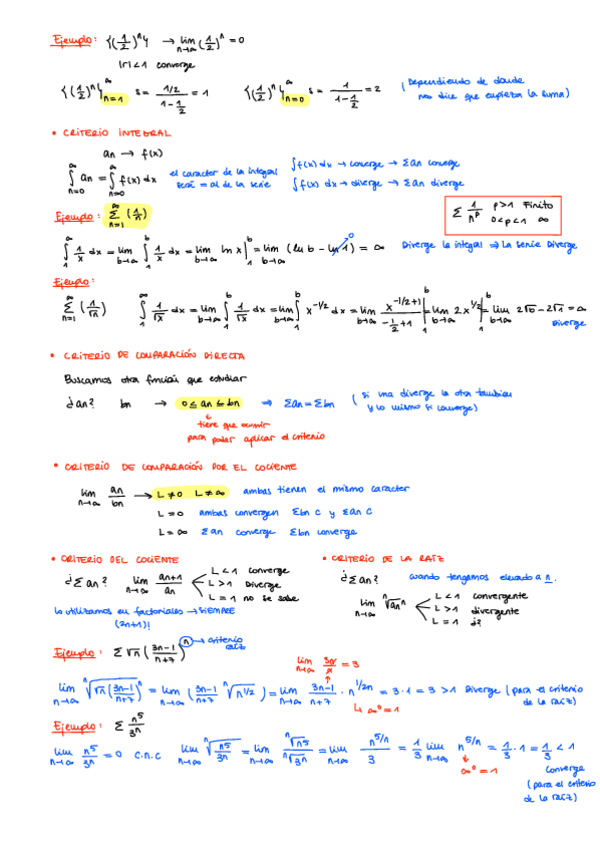 Ejemplo: {(1/2)^n} → lim n→∞ (1/2)^n = 0
|r| < 1 converge
{(1/2)^n}^∞ n=1 s = 1/2 / 1 - 1/2 = 1 {(1/2)^n}^∞ n=0 s = 1 / 1 - 1/2 = 2 (Dependiendo de donde
nos dice que empieza la suma)
• CRITERIO INTEGRAL
an → f(x)
∫^∞ n=0 an = ∫^∞ n=0 f(x) dx el caracter de la integral ∫f(x) dx → converge → Σan converge
será = al de la serie ∫f(x) dx → diverge → Σan diverge
Ejemplo: Σ^∞ n=1 (1/n) Σ 1/n^p p>1 Finito
0<p<1 ∞
∫^∞ 1 1/x dx = lim b→∞ ∫^b 1 1/x dx = lim b→∞ ln x |^b 1 = lim b→∞ (ln b - ln 1) = ∞ Diverge la integral ⇒ La serie Diverge
0
Ejemplo:
Σ^∞ n=1 (1/√n) ∫^∞ 1 1/√x dx = lim b→∞ ∫^b 1 1/√x dx = lim b→∞ ∫^b 1 x^-1/2 dx = lim b→∞ x^-1/2+1 / -1/2+1 |^b 1 = lim b→∞ 2x^1/2 |^b 1 = lim b→∞ 2√b - 2√1 = ∞
Diverge
• CRITERIO DE COMPARACIÓN DIRECTA
Buscamos otra función que estudiar
¿an? bn → 0 ≤ an ≤ bn ⇒ Σan = Σbn (si una diverge la otra tambien
y lo mismo si converge)
tiene que ocurrir
para poder aplicar el criterio
• CRITERIO DE COMPARACIÓN POR EL COCIENTE
lim n→∞ an/bn → L ≠ 0 L ≠ ∞ ambas tienen el mismo caracter
L = 0 ambas convergen Σbn C y Σan C
L = ∞ Σan converge Σbn converge
• CRITERIO DEL COCIENTE
¿Σan? lim n→∞ an+1/an L < 1 converge
L > 1 Diverge
L = 1 no se sabe
lo utilizamos en factoriales → SIEMPRE
(2n+1)!
• CRITERIO DE LA RAÍZ
¿Σan? cuando tengamos elevado a n.
lim n→∞ ⁿ√an L < 1 convergente
L > 1 divergente
L = 1 ¿?
Ejemplo: Σ √n (3n-1/n+7)^n → criterio
raíz
lim n→∞ 3n/n = 3
lim n→∞ ⁿ√(√n (3n-1/n+7)^n) = lim n→∞ (3n-1/n+7 ⁿ√n^1/2) = lim n→∞ 3n-1/n+7 · n^1/2n = 3·1 = 3 > 1 Diverge (para el criterio
de la raíz)
∞^0 = 1
Ejemplo: Σ n^5/3^n
lim n→∞ n^5/3^n = 0 C.n.C lim n→∞ ⁿ√(n^5/3^n) = lim n→∞ ⁿ√n^5 / ⁿ√3^n = lim n→∞ n^5/n / 3 = 1/3 lim n→∞ n^5/n = 1/3 · 1 = 1/3 < 1
∞^0 = 1
converge
(para el criterio
de la raíz)